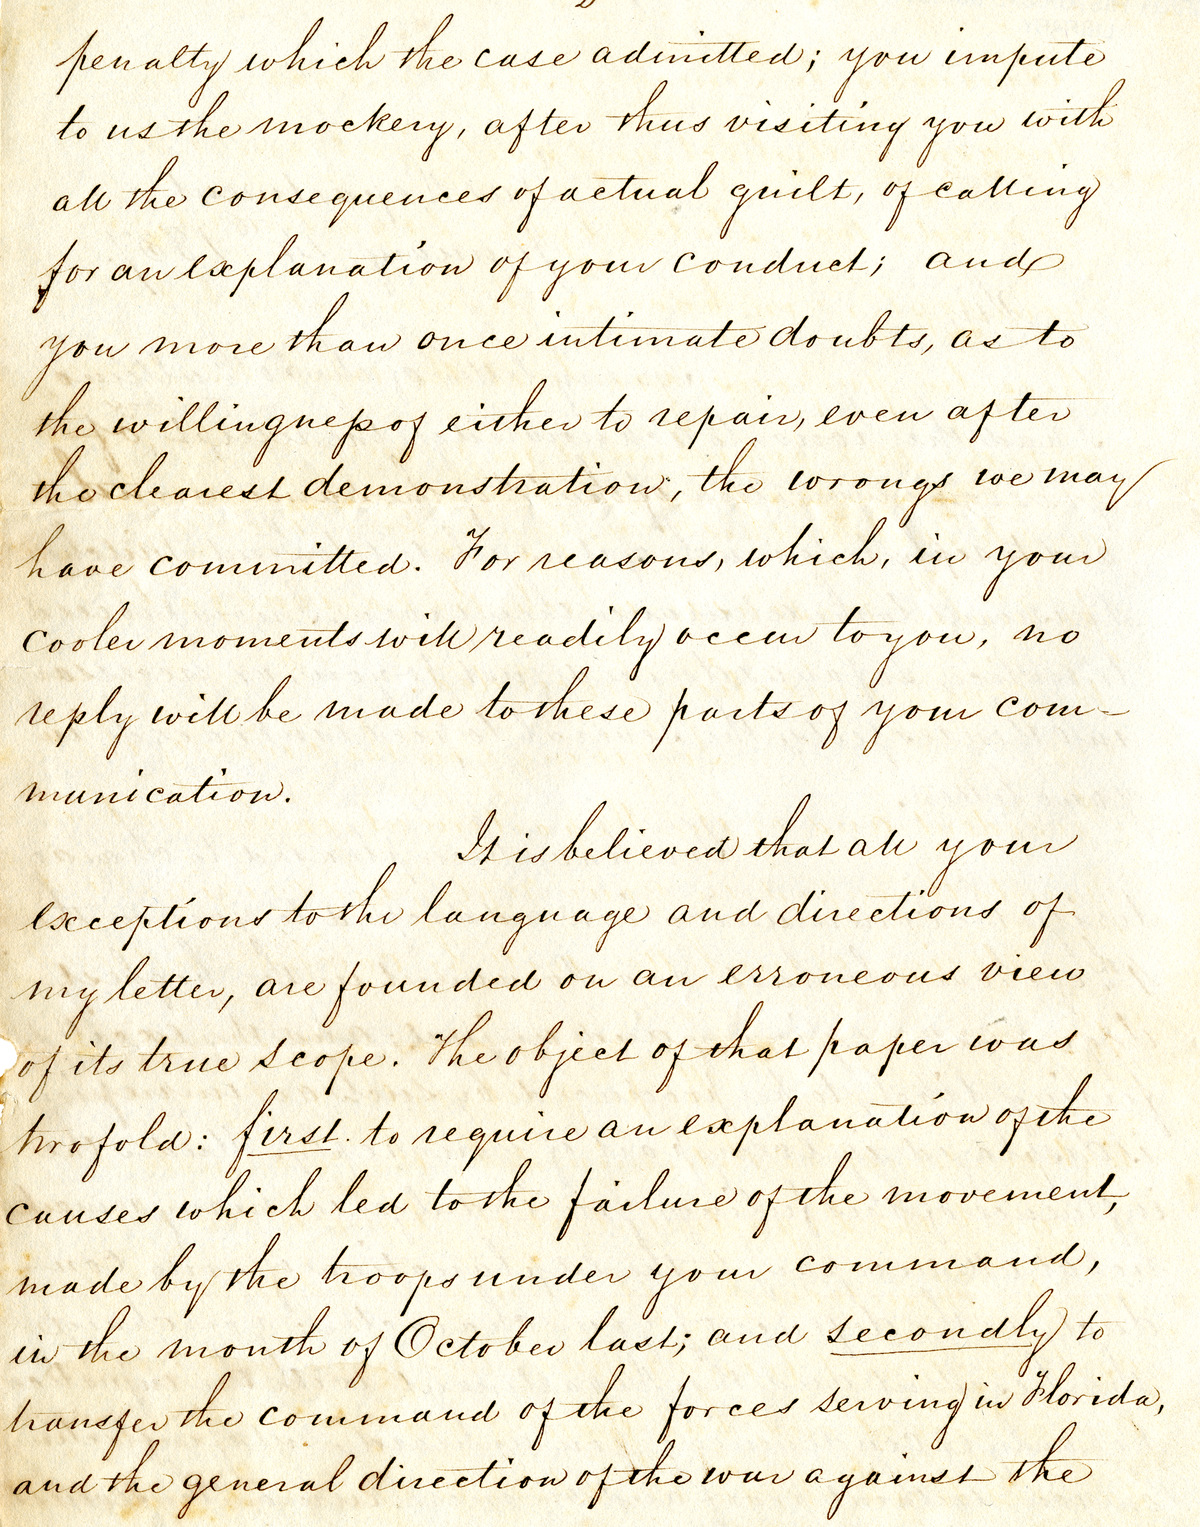 2
penalty which the case admitted; you impute
to us the mockery, after thus visiting you with
all the consequences of actual guilt, of calling
for an explanation of your conduct; and
you more than once intimate doubts, as to
the willingness of either to repair, even after
the clearest demonstration, the wrongs we may
have committed. For reasons, which, in your
cooler moments will readily occur to you, no
reply will be made to these parts of your com-
munication.
It is believed that all your
exceptions to the language and directions of
my letter, are founded on an erroneous view
of its true scope. The object of that paper was
twofold: first. to require an explanation of the
causes which led to the failure of the movement,
made by the troops under your command,
in the month of October last; and secondly to
transfer the command of the forces serving in Florida,
and the general direction of the war against the